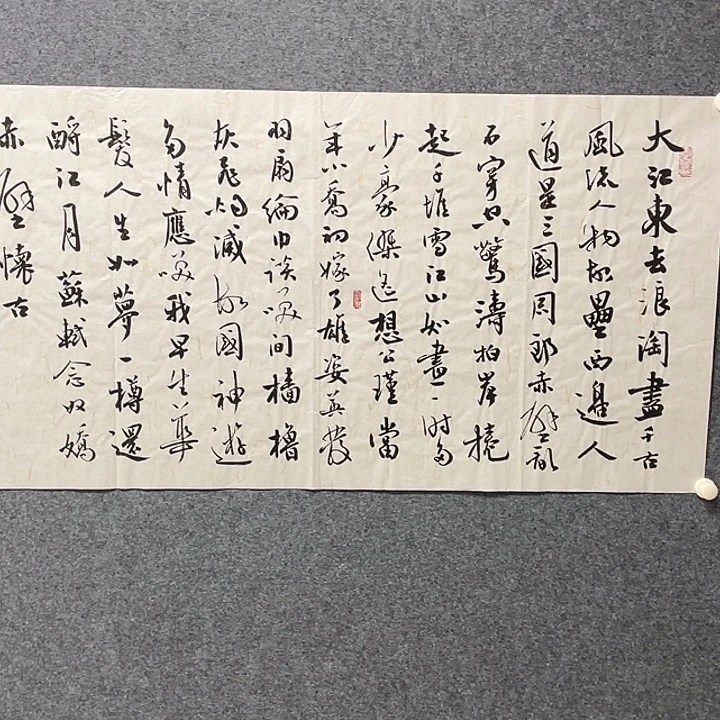 大江東去浪淘盡千古
風流人物故壘西邊人
道是三國周郎赤壁亂
石穿空驚濤拍岸捲
起千堆雪江山如畫一時多
少豪傑遙想公瑾當
年小喬初嫁了雄姿英發
羽扇綸巾談笑間檣櫓
灰飛烟滅故國神遊
多情應笑我早生華
髮人生如夢一樽還
酹江月蘇軾念奴嬌
赤壁懷古